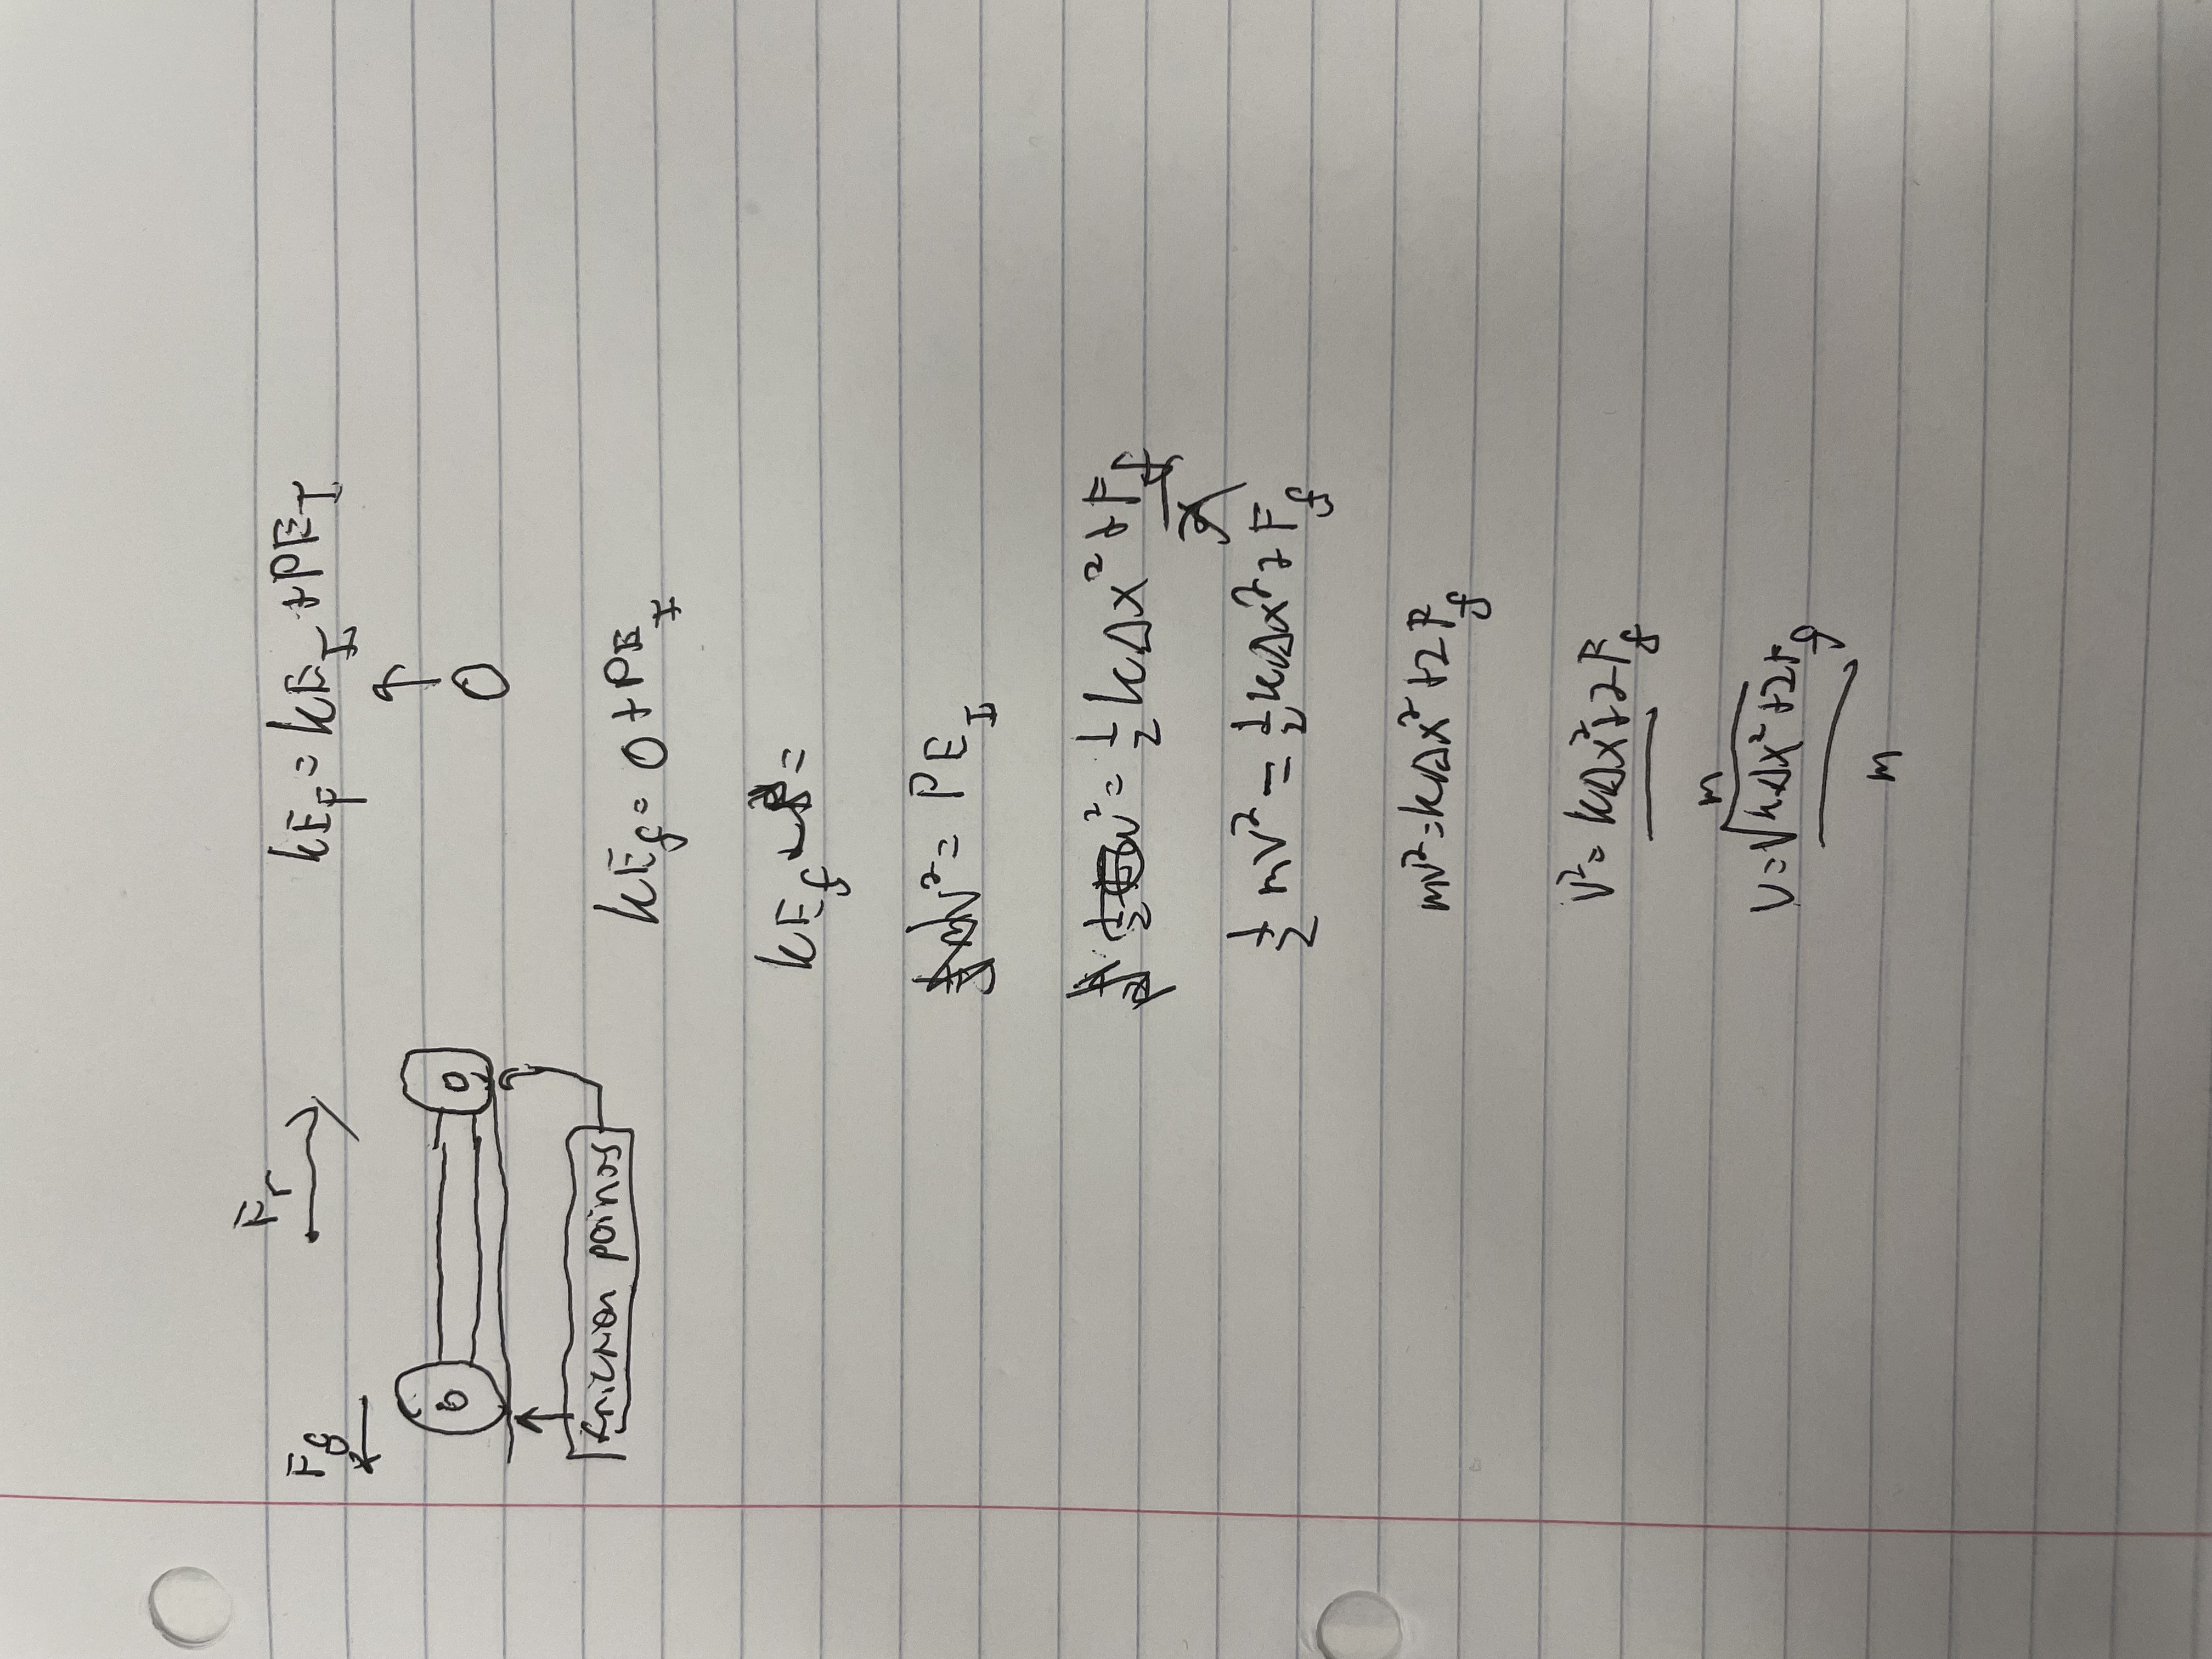 F_r
F_f
friction points
KE_F = KE_I + PE_I
0
KE_f = 0 + PE_I
KE_f =
v² = PE_I
½ v² = ½ kΔx² + F_f
½ mv² = ½ kΔx² + F_f
mv² = kΔx² + 2F_f
v² = kΔx² + 2F_f
m
v = √kΔx² + 2F_f
m